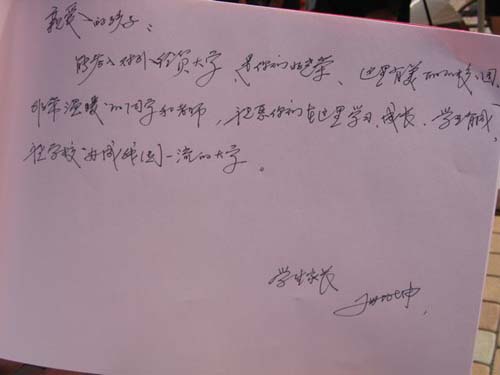 亲爱的孩子：
能考入对外经贸大学，是你们的光荣、这里有美丽的校园、
非常温暖的同学和老师，祝愿你们在这里学习、成长、学业有成、
祝学校办成我国一流的大学。
学生家长